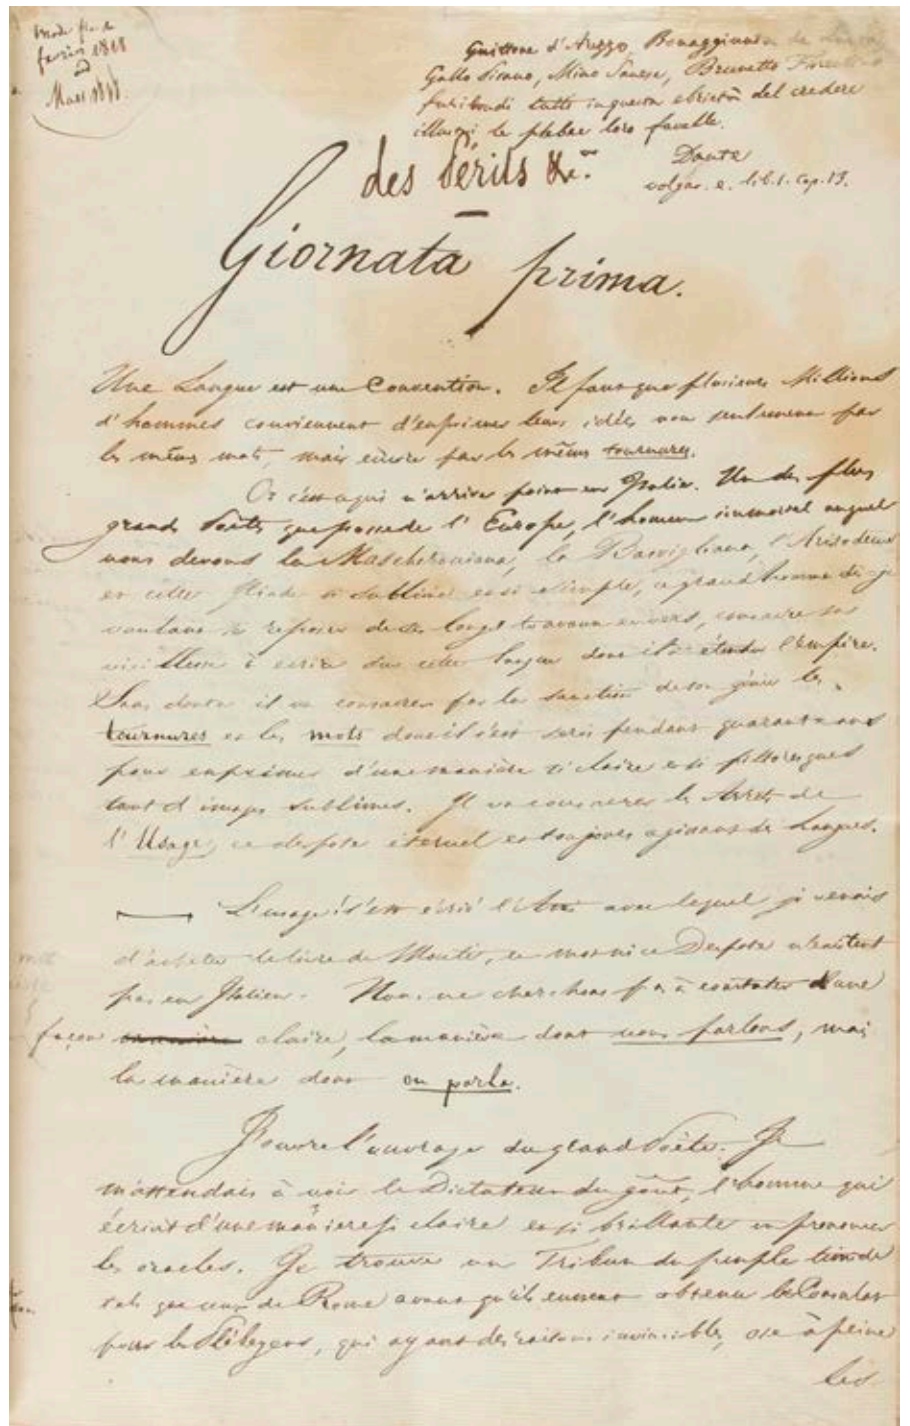 février 1818
Mars 1818.
Guittone d'Arezzo, Bonaggiunta de Lucca,
Gallo Pisano, Mino Sanese, Brunetto Fiorentino
furibondi tutti in questa ebrietà del credere
illustri le plebee loro favelle.
Dante
volgar. e. lib. 1. cap. 13.
des Périls &c.
Giornata prima.
Une Langue est une Convention. Il faut que plusieurs Millions
d'hommes conviennent d'exprimer leurs idées non seulement par
les mêmes mots, mais encore par les mêmes tournures.
Or c'est ce qui n'arrive point en Italie. Un des plus
grands Poètes que possède l'Europe, l'homme immortel auquel
nous devons la Mascheroniana, la Basvigliana, l'Aristodeme
et cette Iliade si sublime et si simple, ce grand homme dis-je
voulant se reposer de ses longs travaux en vers, consacre sa
vieillesse à écrire sur cette langue dont il a étendu l'empire.
Sans doute il va consacrer par la sanction de son génie les
tournures et les mots dont il s'est servi pendant quarante ans
pour exprimer d'une manière si claire et si pittoresque
tant d'images sublimes. Il va consacrer les Arrêts de
l'Usage, ce despote éternel et toujours agissant des Langues.
L'usage! s'est écrié l'Ami avec lequel je venais
d'acheter le livre de Monti, ce mot ni ce Despote n'existent
pas en Italien. Nous ne cherchons pas à constater d'une
façon claire, la manière dont nous parlons, mais
la manière dont on parla.
J'ouvre l'ouvrage du grand Poète. Je
m'attendais à voir le Dictateur du goût, l'homme qui
écrivit d'une manière si claire et si brillante en prononcer
les oracles. Je trouve un Tribun du peuple timide
tels que ceux de Rome avant qu'ils eussent obtenu le Consulat
pour les Plébeyens, qui ayant des raisons invincibles, ose à peine
les